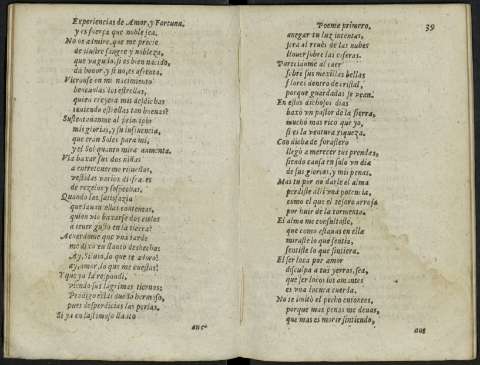 Experiencias de Amor, y Fortuna,
y es fuerça que noble sea.
No os admire, que me precie
de ilustre sangre y nobleza,
que y si es bien nacido,
da honor, y si no, es afrenta.
Vieronse en mi nacimiento
las estrellas,
quien creyera mis desdichas
teniendo estrellas tan buenas?
al principio
mis glorias, y su influencia,
que eran Soles para mi,
y el Sol quanto mira aumenta.
Via baxar sus dos niñas
a entretenerme risueñas,
vestidas varios disfrazes
de regozios y sospechas.
Quando las satisfazia
que
quien vio baxarse dos cielos
a tener gusto en la tierra?
Acuerdome que vna tarde
me dixo en llanto deshechas
Ay, Siluio, lo que te adoro!
ay, amor, lo que me cuestas!
Y que yo la respondi,
viendo sus lagrimas tiernas;
Prodigo estàs dueño hermoso,
pues desperdicias las perlas.
Si ya en lastimoso llanto
ane-
Poema primero, 39
anegar tu luz intentas,
sera al reués de las nubes
llouer sobre las esferas.
Parecianme al caer
sobre sus mexillas bellas
flores dentro de cristal,
porque guardadas se vean.
En estos dichosos dias
baxò vn pastor de la sierra,
mucho mas rico que yo,
si es la ventura riqueza.
Con dicha de forastero
llegò a merecer sus prendas,
siendo causa en solo vn dia
de sus glorias, y mis penas.
Mas tu por no darle el alma
perdiste alli vna potencia,
como el que el tesoro arroja
por huir de la tormenta.
El alma me consultaste,
que como estauas en ella
miraste lo que sentia,
sentiste lo que sintiera.
El ser loca por amor
disculpa a tus yerros, sea,
que ser locos los amantes
es vna locura cuerda.
No se imitò el pecho entonces,
porque mas penas me deuas,
que mas es morir sintiendo,
aun